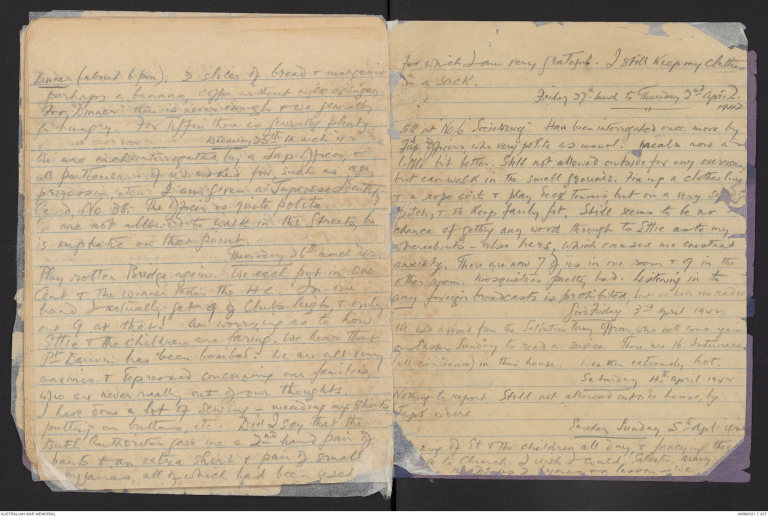 Dinner (about 6 pm). 2 slices of bread & margarine
perhaps a banana, coffee without milk or sugar
For "Dinner" there is never enough & we generally
go hungry. For Tiffin there is generally plenty
Wednesday 25th March 42
We are each interrogated by a Jap Officer, &
all particulars of us asked for, such as age,
profession etc. I am given a Japanese Identity
Card, No 38. The Officer is quite polite.
We are not allowed to walk in the Streets, he
is emphatic on that point.
Thursday 26th March 42
Play rotten Bridge again. We each put in one
Cent & the winner takes the
hand I actually get 9 of Clubs high & only
one 9 at that. Am worrying as to how
Ettie & the children are faring. We hear that
Pt Darwin has been bombed. We are all very
anxious & depressed concerning our families,
who are never really out of our thoughts.
I have done a lot of sewing - mending my shirts
putting on buttons, etc. Did I say that the
Dutch Authorities gave me a 2nd hand pair of
pants & an extra shirt & pair of small
pyjamas, all of which had been used
for which I am very grateful. I still keep my clothes
in a sack.
Friday 27th March to Thursday 2nd April
1942
Still at "No 6 Societeweg" Have been interrogated once more by
Jap Officers who very polite as usual. Meals now a
little bit better. Still not allowed outside for any exercise
but can walk in the small grounds. Fixing a clothesline
& a rope coit & play Deck Tennis but on a very
Pitch, & so keep fairly fit. Still seems to be no
chance of getting any word through to Ettie as to my
whereabouts - also hers, which causes me constant
anxiety. There are now 7 of us in one room & 9 in the
other room. Mosquitoes pretty bad. Listening in to
any foreign broadcasts is prohibited but we have no radio
Good Friday 3rd April 1942
We had a visit from the Salvation Army Officer, who will come again
on Easter Sunday to read a service. There are 16 Internees
(all civilians) in this house. Weather extremely hot.
Saturday 4th April 1942
Nothing to report. Still not allowed outside house, by
Japs orders.
Easter Sunday 5th Apl. 42
of Et & the children all day, & fancying them
to Church. I wish I could. Salvation Army
reads us & lesson - we
AUSTRALIAN WAR MEMORIAL